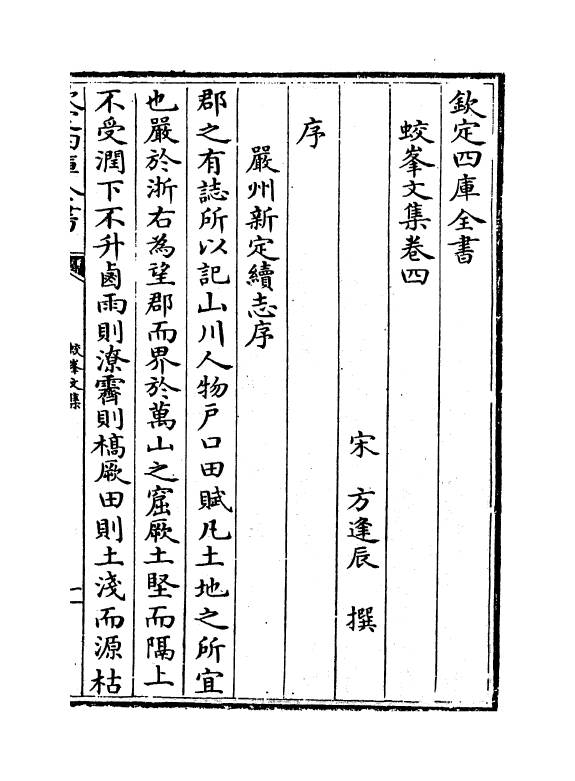 欽定四庫全書
蛟峯文集卷四
宋 方逢辰 撰
序
嚴州新定續志序
郡之有誌所以記山川人物戸口田賦凡土地之所宜
也嚴於浙右為望郡而界於萬山之窟厥土堅而隔上
不受潤下不升鹵雨則潦霽則槁厥田則土淺而源枯
蛟峯文集
一